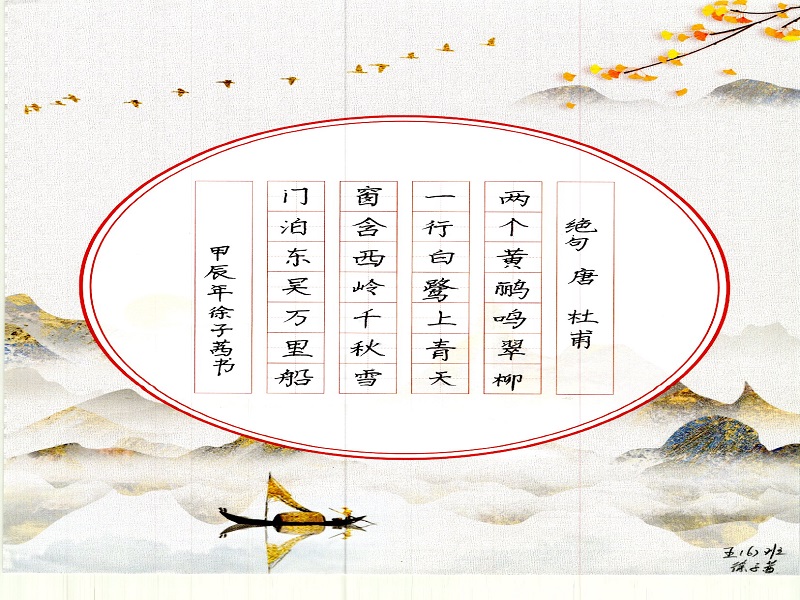 绝句 唐 杜甫
两个黄鹂鸣翠柳
一行白鹭上青天
窗含西岭千秋雪
门泊东吴万里船
甲辰年徐子茜书
五(6)班
徐子茜